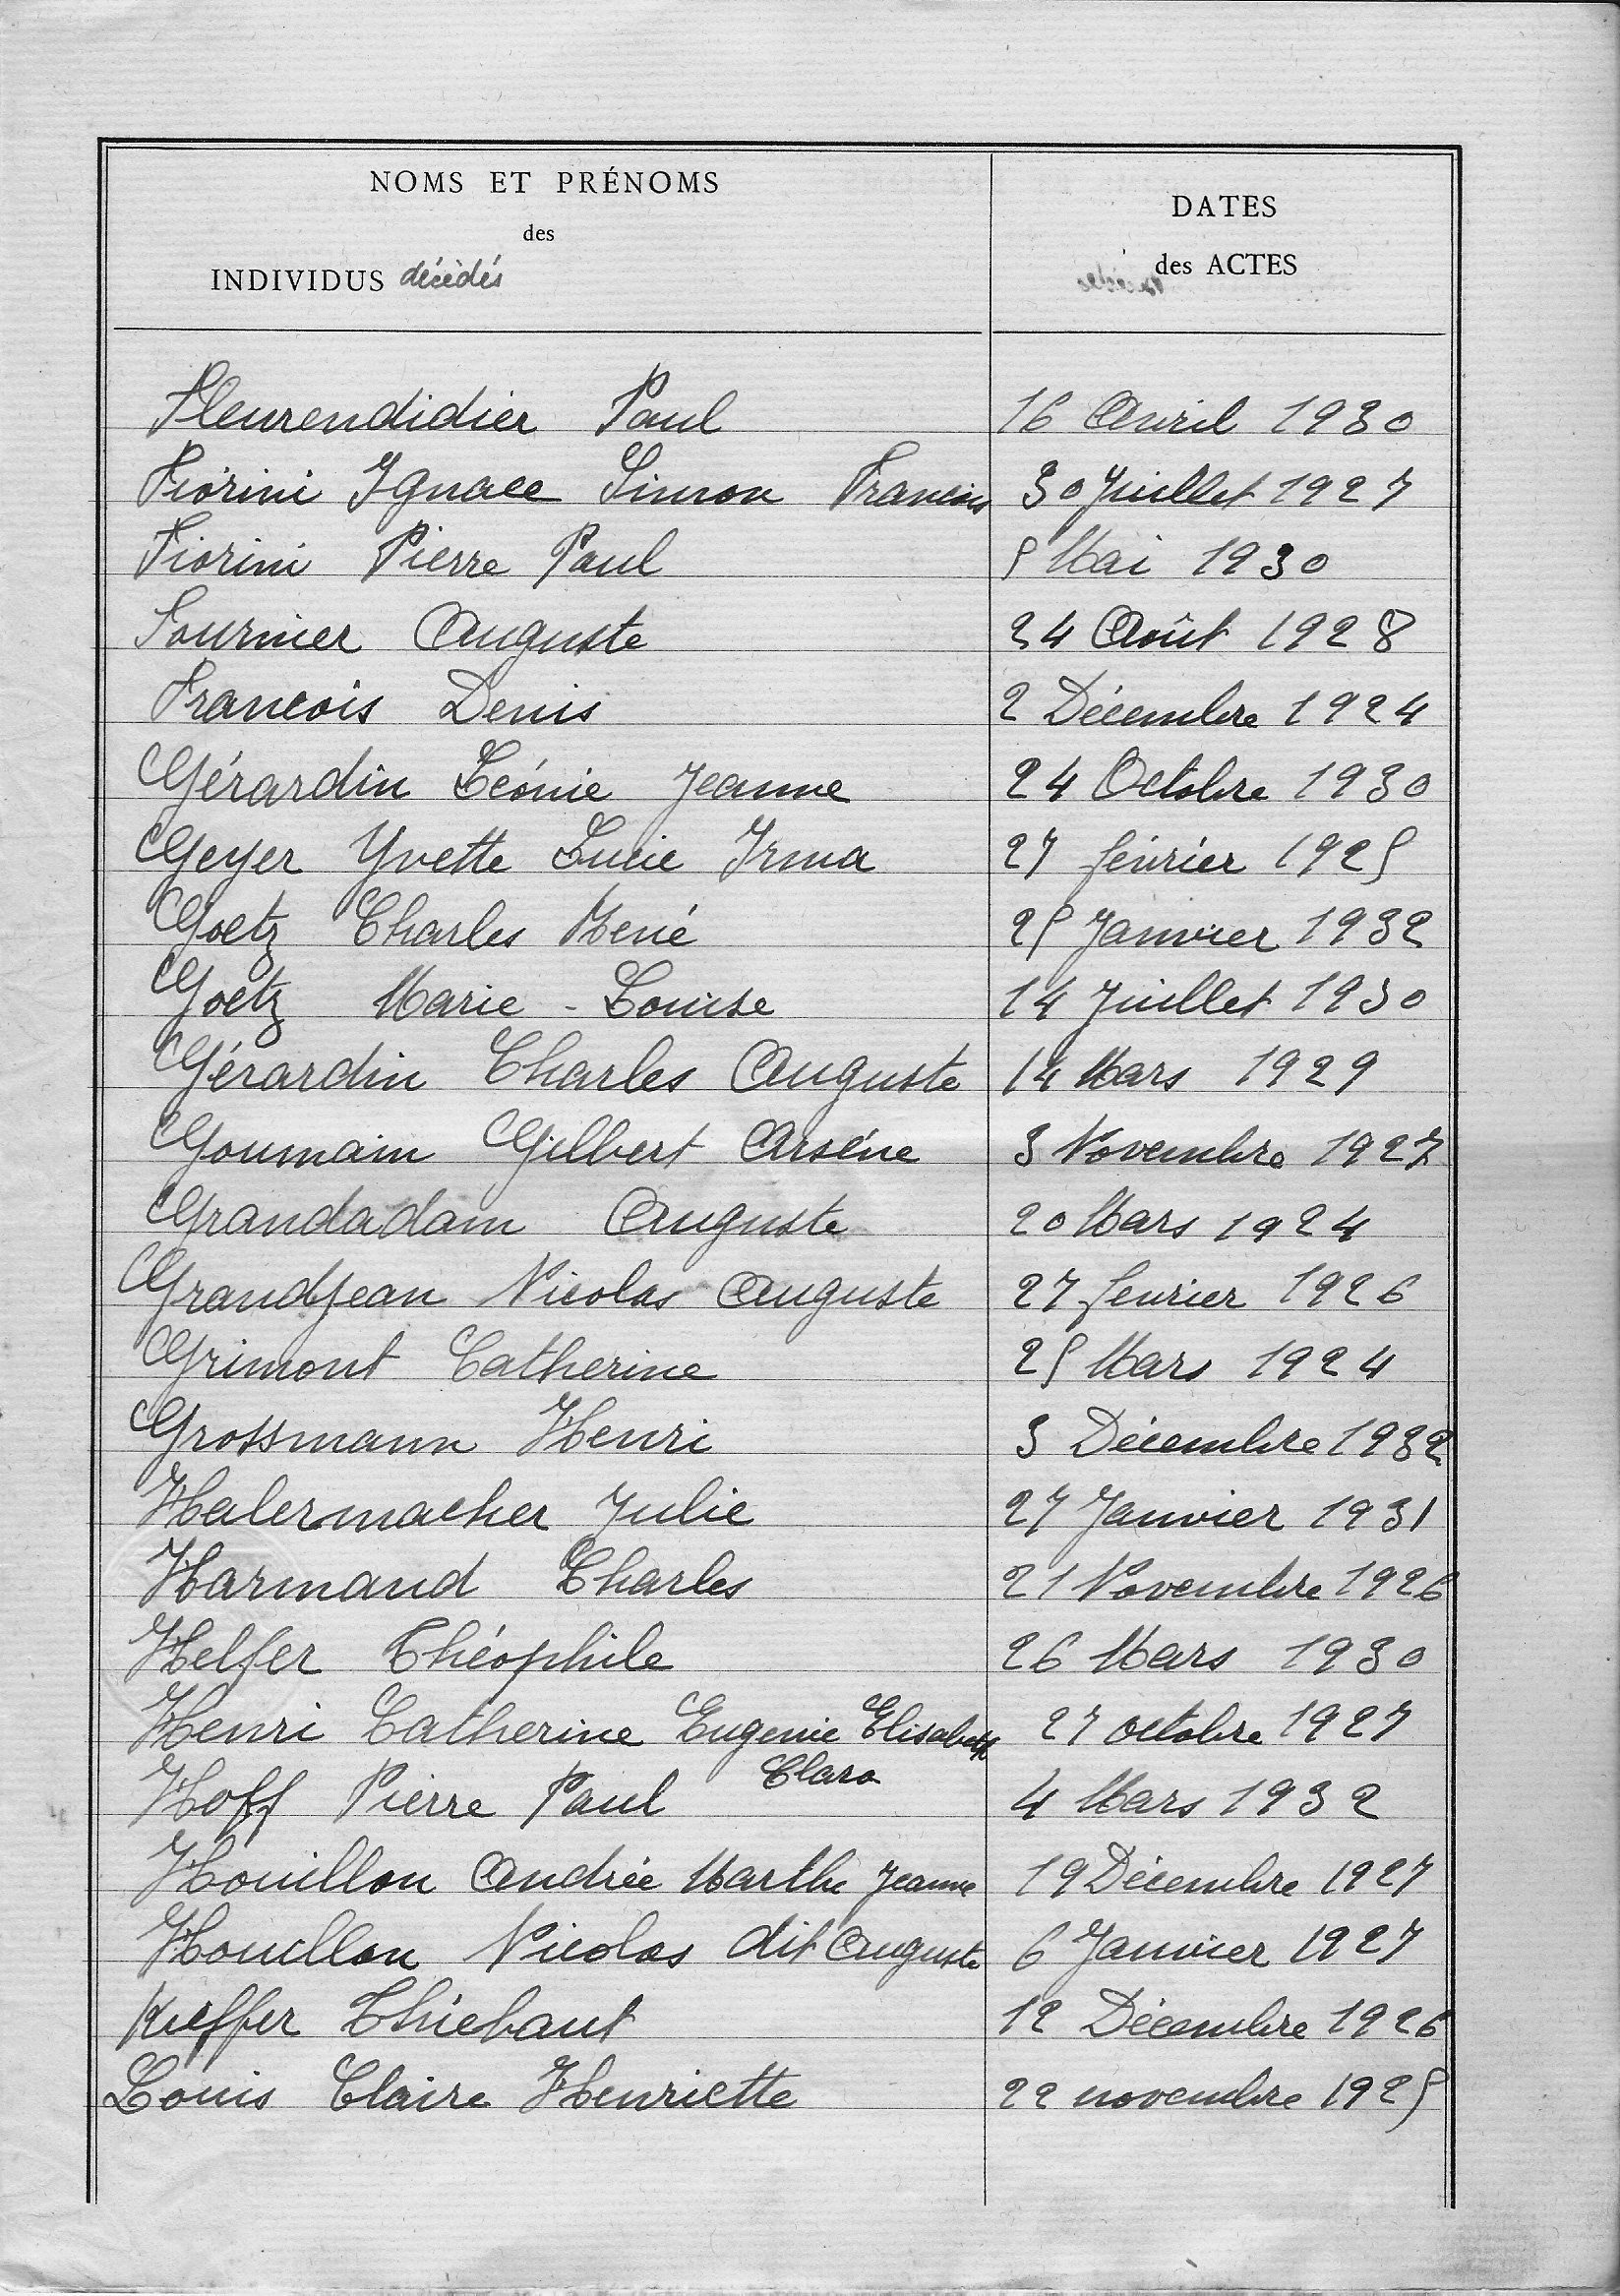 NOMS ET PRÉNOMS
des
INDIVIDUS décédés
DATES
des ACTES
Fleurendidier Paul 16 Avril 1930
Fiorini Ignace Simon Francois 30 Juillet 1927
Fiorini Pierre Paul 5 Mai 1930
Fournier Auguste 24 Août 1928
Francois Denis 2 Décembre 1924
Gérardin Léonie Jeanne 24 Octobre 1930
Geyer Yvette Lucie Irma 27 février 1925
Goetz Charles René 25 Janvier 1932
Goetz Marie - Louise 14 Juillet 1930
Gérardin Charles Auguste 14 Mars 1929
Goumain Gilbert Arséne 3 Novembre 1927
Grandadam Auguste 20 Mars 1924
Grandjean Nicolas Auguste 27 fevrier 1926
Grimont Catherine 25 Mars 1924
Grossmann Henri 3 Décembre 1932
Halermacher Julie 27 Janvier 1931
Harmand Charles 21 Novembre 1926
Helfer Théophile 26 Mars 1930
Henri Catherine Eugenie Elisabeth 27 octobre 1927
Clara
Hoff Pierre Paul 4 Mars 1932
Houillon Andrée Marthe Jeanne 19 Décembre 1927
Houillon Nicolas dit Auguste 6 Janvier 1927
Kieffer Thiebaut 12 Décembre 1926
Louis Claire Henriette 22 novembre 1925